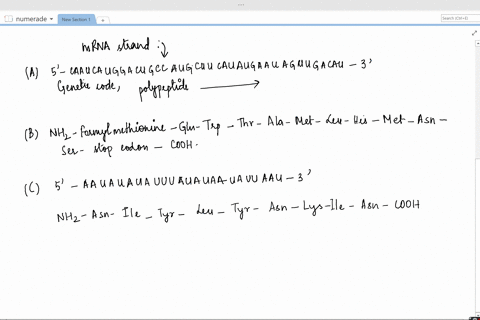 numerade
New Section 1
mRNA strand :
(A) 5'- CAAUCAUGGACUGCC AUGCUU CAUAUGAAU AGUUGACAU - 3'
Genetic code, polypeptide
(B) NH2- Formylmethionine - Gln - Trp - Thr - Ala - Met - Leu - His - Met - Asn -
Ser - stop codon - COOH.
(C) 5' - AAUAUAUAUUUAUAUAA UAUU AAU - 3'
NH2 - Asn - Ile - Tyr - Leu - Tyr - Asn - Lys - Ile - Asn - COOH